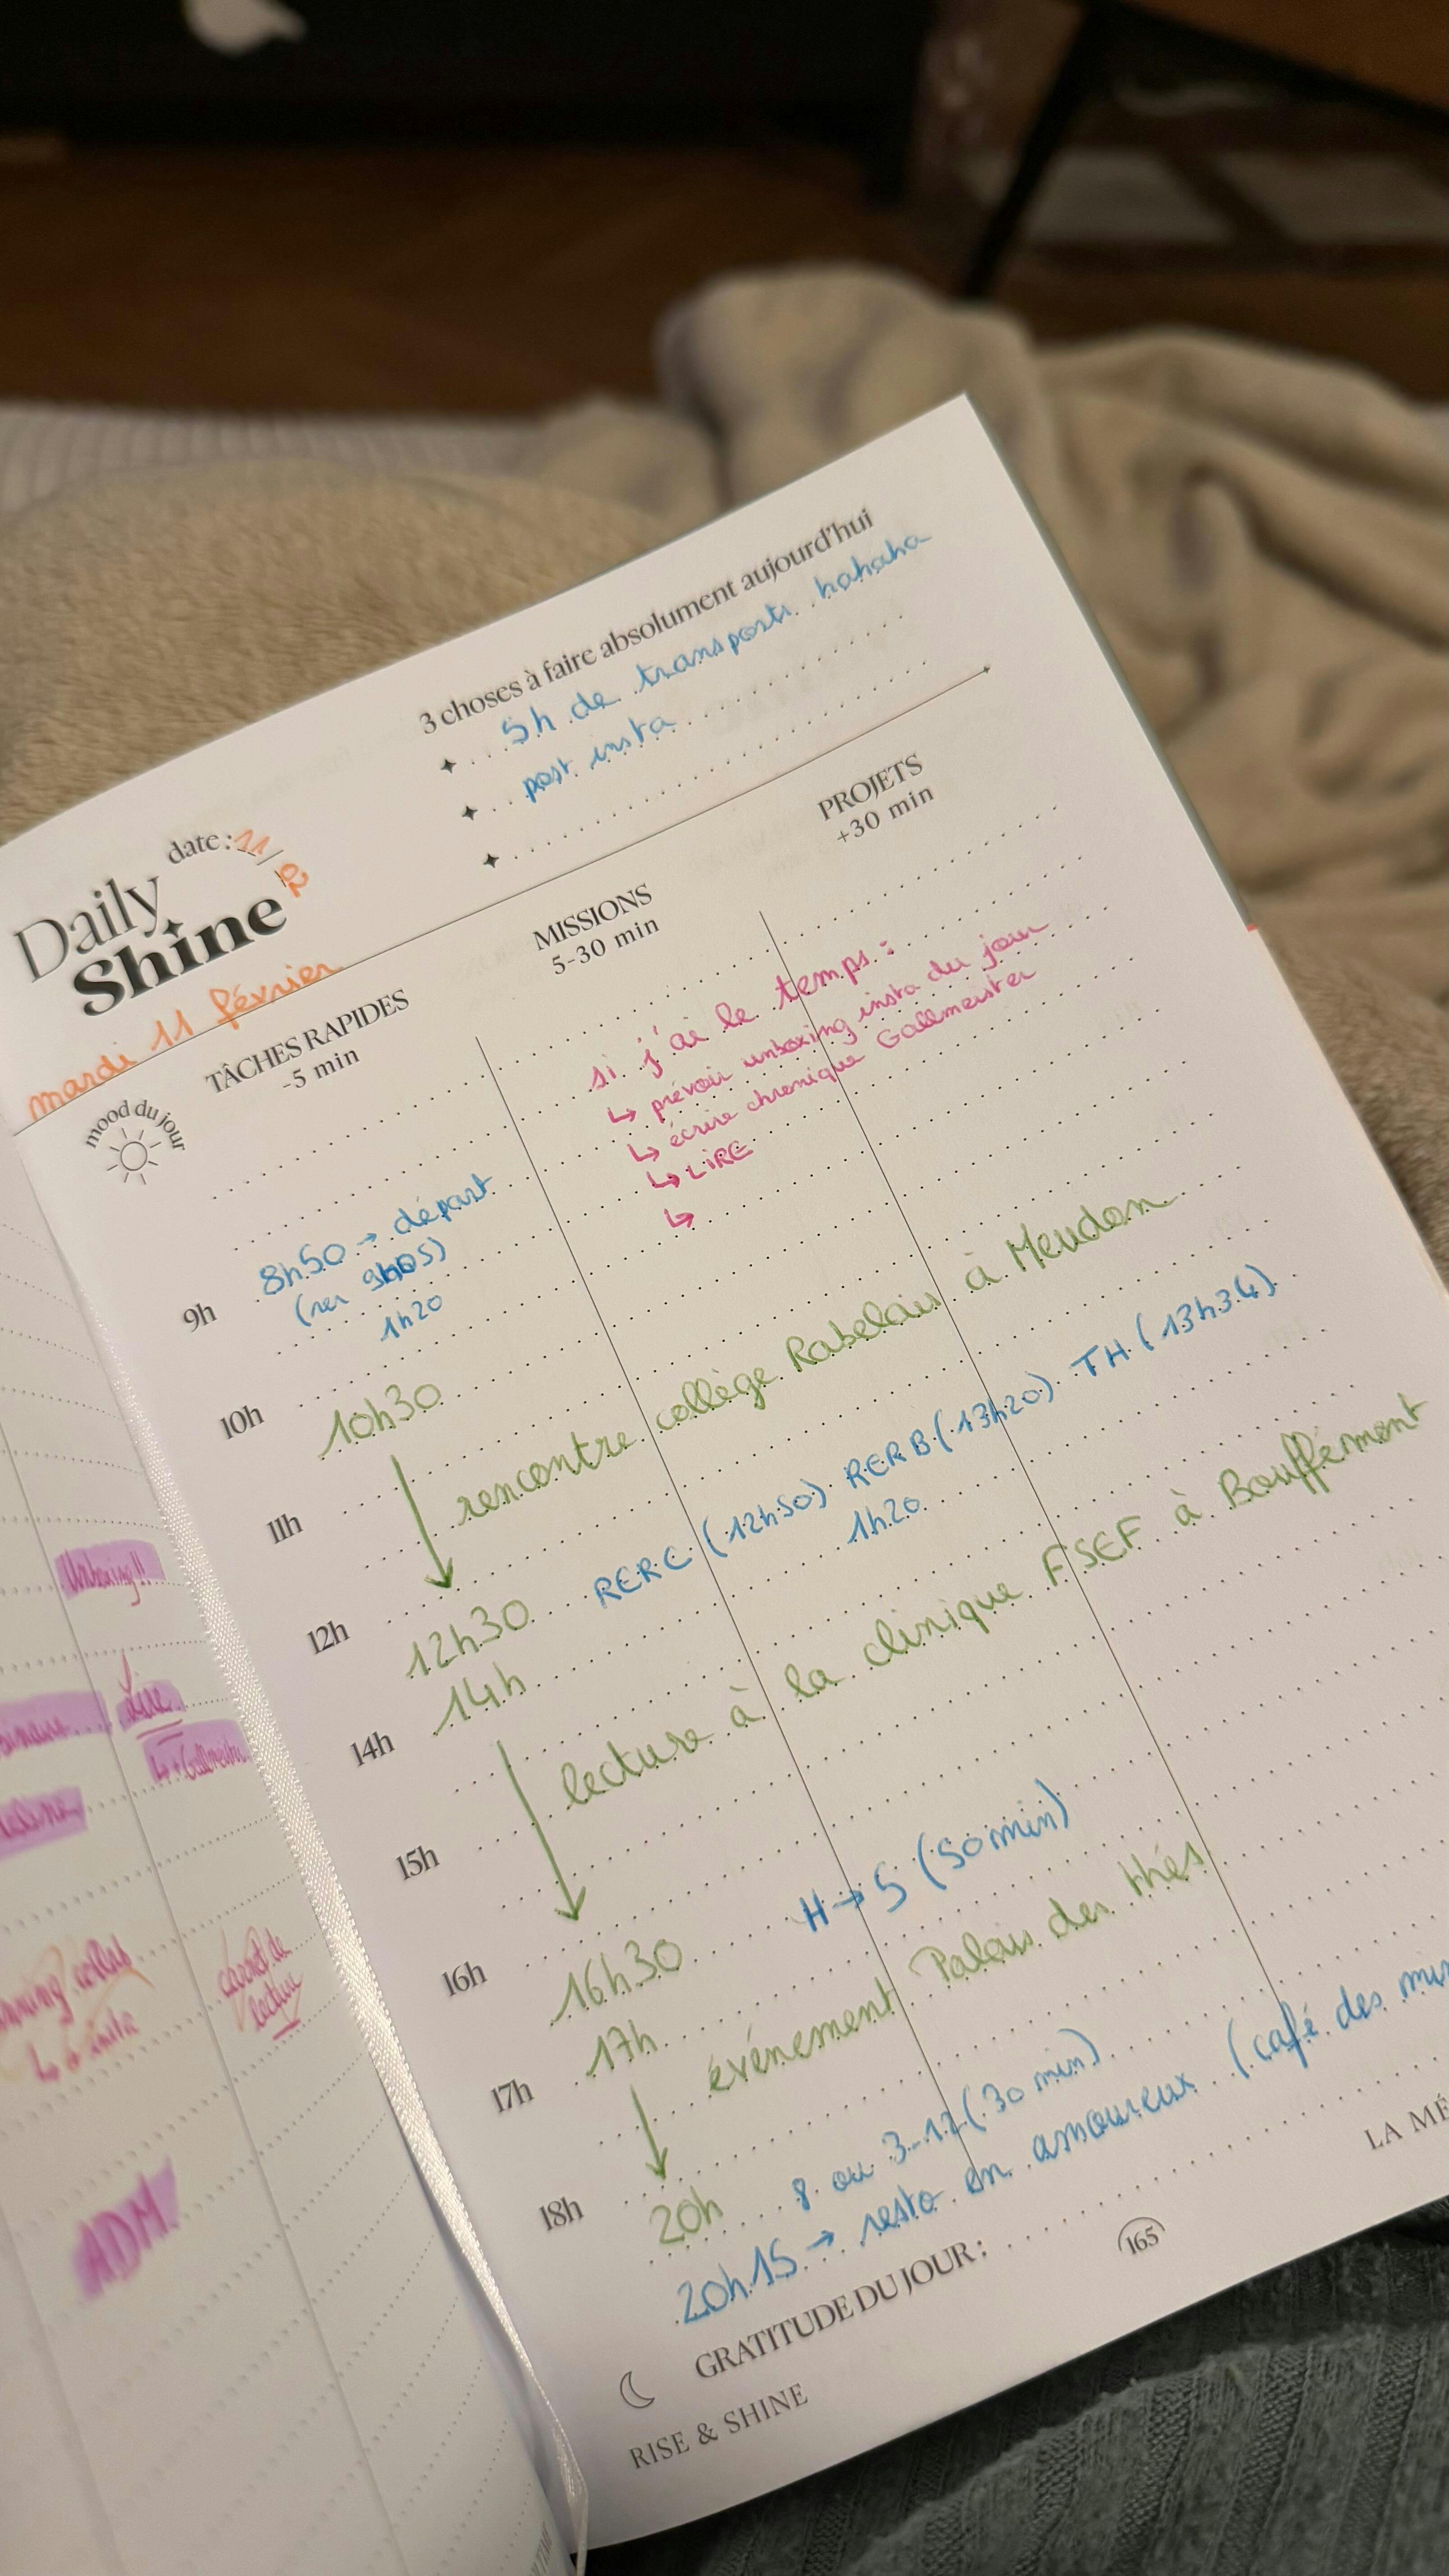 3 choses à faire absolument aujourd'hui
5h de transports hahaha
post insta
date: 11/02
Daily
Shine
mardi 11 février
mood du jour
TÂCHES RAPIDES
-5 min
MISSIONS
5-30 min
PROJETS
+30 min
si j'ai le temps :
↳ prévoir unboxing insta du jour
↳ écrire chronique Gallmeister
↳ LIRE
↳
8h50 → départ
(rer
1h20
9h
10h
10h30
rencontre collège Rabelais à Meudon
11h
RER C (12h50) RER B (13h20) TH (13h34)
1h20
12h
12h30
14h
14h
lecture à la clinique FSEF à Bouffémont
15h
H → S (50 min)
16h
16h30
17h
17h
événement Palais des thés
18h
20h
8 ou 3-12 (30 min)
20h15 → resto en amoureux (café des
GRATITUDE DU JOUR :
165
LA MÉ
RISE & SHINE
Unboxing !!
Lire
↳ + Gallmeister
carnet de
lecture
ADM!